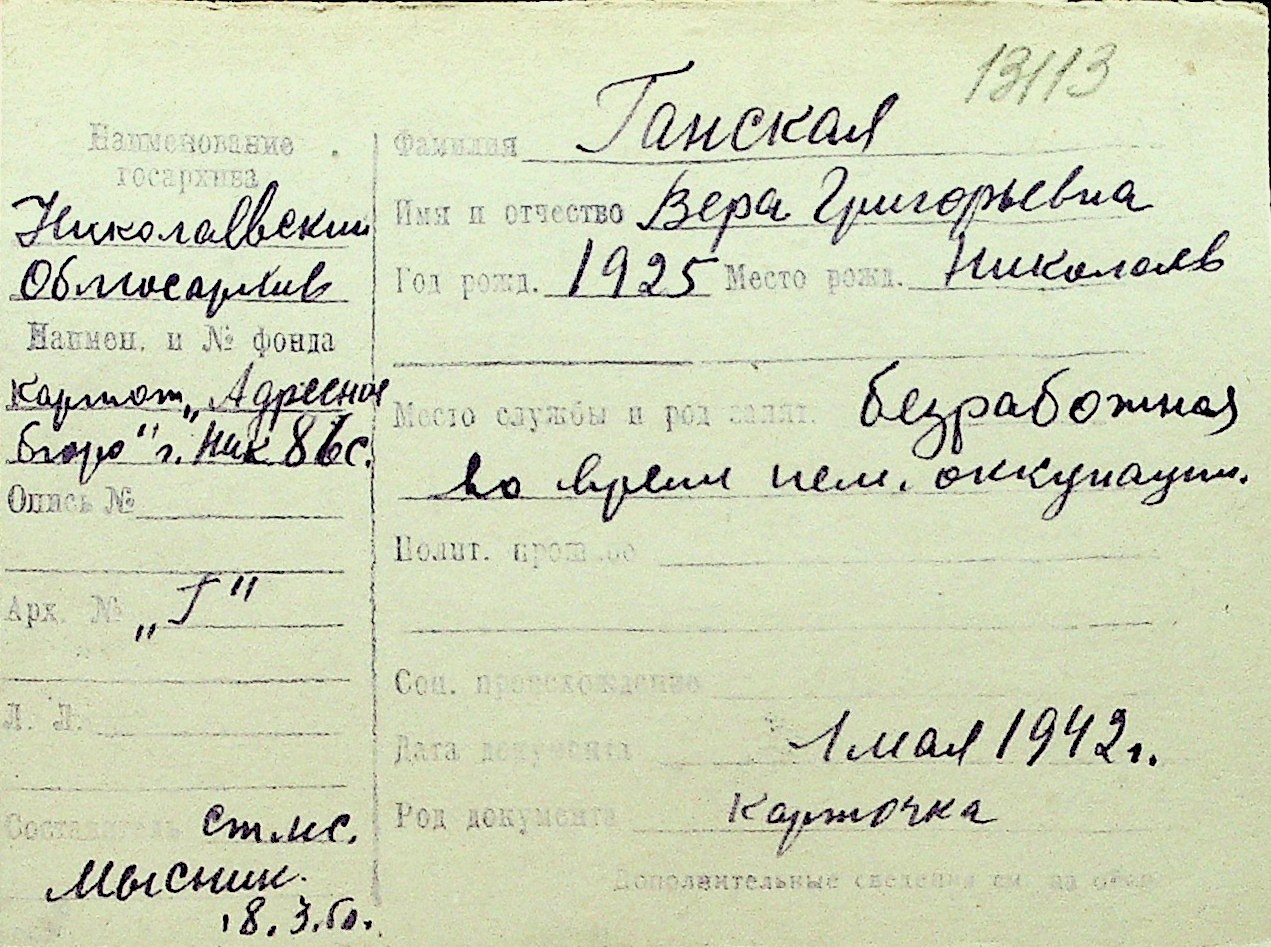 13113
Наименование
госархива
Николаевский
Облгосархив
Наимен. и № фонда
картот. „Адресное
бюро" г. Ник 86с.
Опись №
Арх. № „Г"
Л. Л.
Составитель ст. лс.
Мысник.
18.3.50.
Фамилия Ганская
Имя и отчество Вера Григорьевна
Год рожд. 1925 Место рожд. Николаев
Место службы и род занят. безработная
во время нем. оккупации.
Полит. прошлое
Соц. происхождение
Дата документа 1 мая 1942 г.
Род документа Карточка
Дополнительные сведения см. на обор.